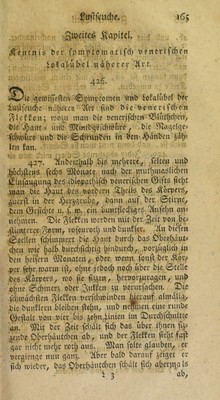 Lustseuche. 165
Zweites Kapitel.
Kentnis der symptomatisch venerischen
Lokalübel näherer Art.
426.
Die gewissesten Symptomen und Lokalübel der
Lustseuche näherer Art sind die venerischen
Flekken; wozu man die venerischen Blüthchen,
die Haut- und Mundgeschwüre, die Nagelge-
schwüre und die Schrunden in den Händen zäh-
len kan.
427. Anderthalb bis mehrere, selten und
höchstens sechs Monate nach der muthmaslichen
Einsaugung des idiopathisch venerischen Gifts sieht
man die Haut des vordern Theils des Körpers,
zuerst in der Herzgrube, dann auf der Stirne,
dem Gesichte u. s. w. ein buntflekkiges Ansehn an-
nehmen. Die Flekken werden mit der Zeit von be-
stimterer Form, rosenroth und dunkler. An diesen
Stellen schimmert die Haut durch das Oberhäut-
chen wie halb durchsichtig hindurch, vorzüglich in
den heisern Monaten, oder wenn sonst der Kör-
per sehr warm ist, ohne jedoch noch über die Stelle
des Körpers, wo sie sizen, hervorzuragen, und
ohne Schmerz oder Jukken zu verursachen. Die
schwächsten Flekken verschwinden hierauf almälig,
die dunklern bleiben stehn, und nehmen eine runde
Gestalt von vier bis zehn Linien im Durchschnitte
an. Mit der Zeit schält sich das über ihnen si-
zende Oberhäutchen ab, und der Flekken sieht fast
gar nicht mehr roth aus. Man solte glauben, er
vergienge nun ganz. Aber bald darauf zeiget er
sich wieder, das Oberhäutchen schält sich abermals
L 3 ab,